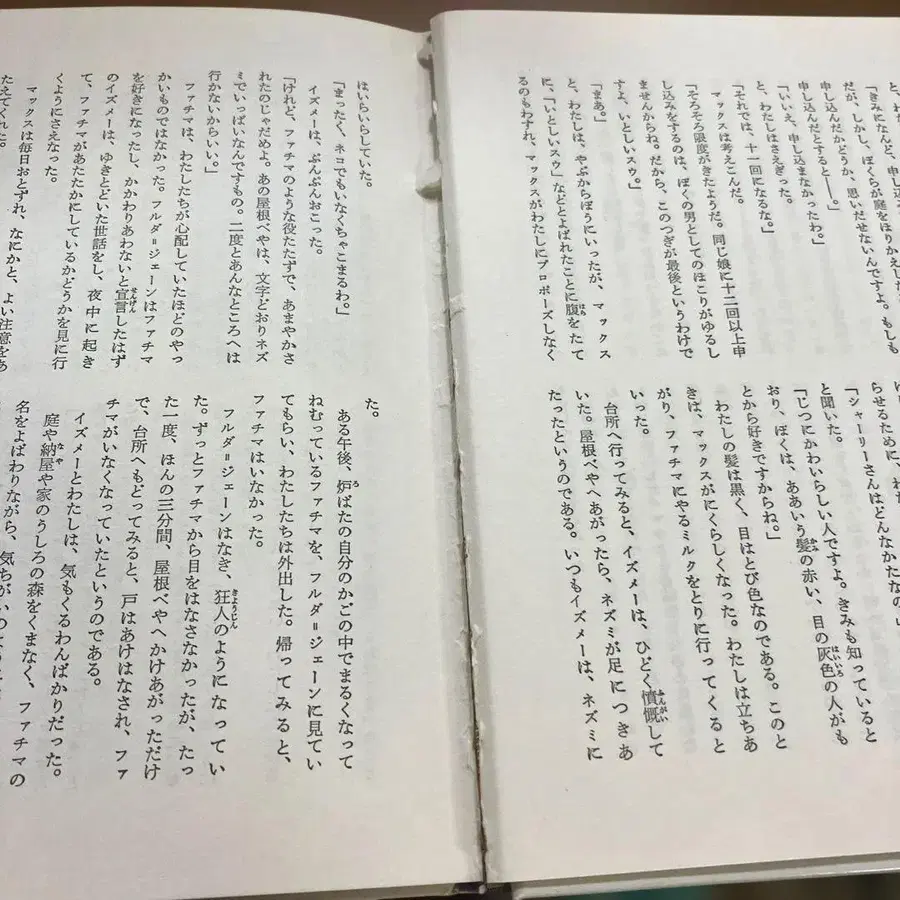 と、わた
「きみになんど、申し込
だが、しかし、ぼくらが庭をほりかえした
申し込んだかどうか、思いだせないんですよ。もしも
申し込んだとすると――。」
「いいえ、申し込まなかったわ。」
と、わたしはさえぎった。
「それでは、十一回になるな。」
マックスは考えこんだ。
「そろそろ限度がきたようだ。同じ娘に十二回以上申
し込みをするのは、ぼくの男としてのほこりがゆるし
ませんからね。だから、このつぎが最後というわけで
すよ、いとしいスゥ。」
「まあ。」
と、わたしは、やぶからぼうにいったが、マックス
に、「いとしいスゥ」などとよばれたことに腹をたて
るのもわすれ、マックスがわたしにプロポーズしなく
らせるために、わた
「シャーリーさんはどんなかたなの。」
と聞いた。
「じつにかわいらしい人ですよ。きみも知っていると
おり、ぼくは、ああいう髪の赤い、目の灰色の人がも
とから好きですからね。」
わたしの髪は黒く、目はとび色なのである。このと
きは、マックスがにくらしくなった。わたしは立ちあ
がり、ファチマにやるミルクをとりに行ってくると
いった。
台所へ行ってみると、イズメーは、ひどく憤慨して
いた。屋根べやへあがったら、ネズミが足につきあ
たったというのである。いつもイズメーは、ネズミに
はいらいらしていた。
「まったく、ネコでもいなくちゃこまるわ。」
イズメーは、ぷんぷんおこった。
「けれど、ファチマのような役たたずで、あまやかさ
れたのじゃだめよ。あの屋根べやは、文字どおりネズ
ミでいっぱいなんですもの。二度とあんなところへは
行かないからいい。」
ファチマは、わたしたちが心配していたほどのやっ
かいものではなかった。フルダ゠ジェーンはファチマ
を好きになったし、かかわりあわないと宣言したはず
のイズメーは、ゆきとどいた世話をし、夜中に起き
て、ファチマがあたたかにしているかどうかを見に行
くようにさえなった。
マックスは毎日おとずれ、なにかと、よい注意をあ
たえてくれた。
た。
ある午後、炉ばたの自分のかごの中でまるくなって
ねむっているファチマを、フルダ゠ジェーンに見てい
てもらい、わたしたちは外出した。帰ってみると、
ファチマはいなかった。
フルダ゠ジェーンはなき、狂人のようになってい
た。ずっとファチマから目をはなさなかったが、たっ
た一度、ほんの三分間、屋根べやへかけあがっただけ
で、台所へもどってみると、戸はあけはなされ、ファ
チマがいなくなっていたというのである。
イズメーとわたしは、気もくるわんばかりだった。
庭や納屋や家のうしろの森をくまなく、ファチマの
名をよばわりながら、気ちがいのよう